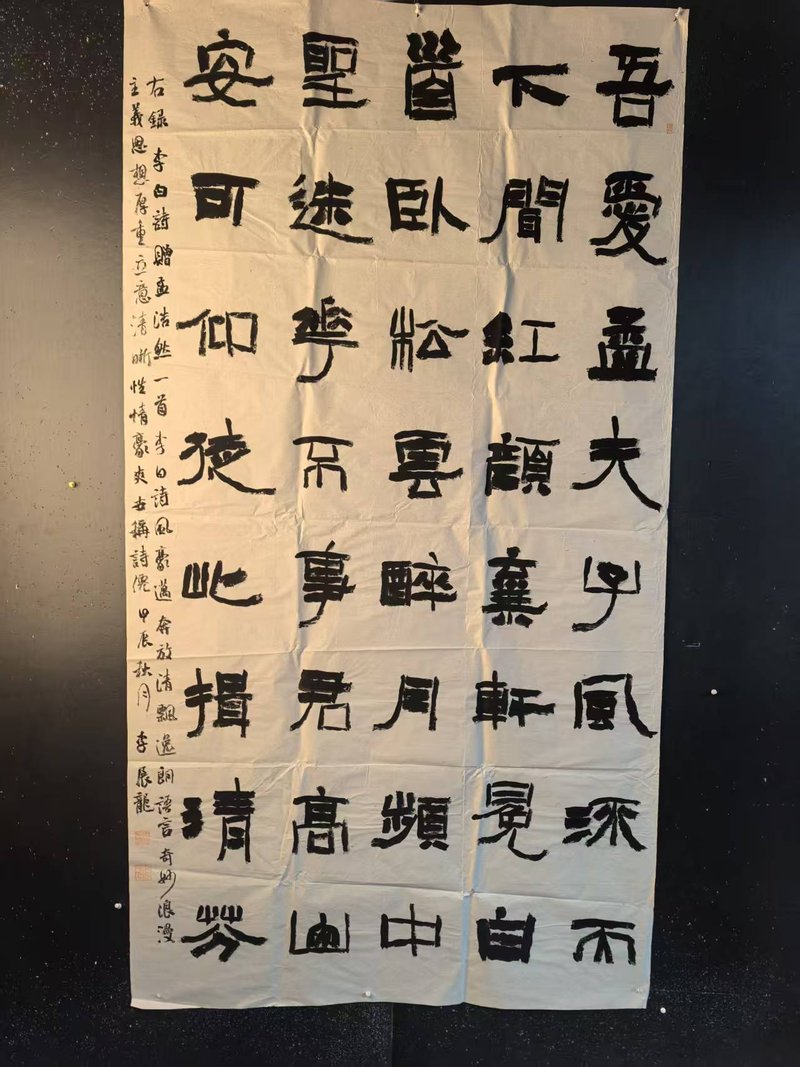 吾愛孟夫子風流天
下聞紅顏棄軒冕白
首臥松雲醉月頻中
聖迷花不事君高山
安可仰徒此揖清芬
右錄李白詩贈孟浩然一首李白詩風豪邁奔放清飄逸朗語言奇妙浪漫
主義思想厚重立意清晰性情豪爽世稱詩僊甲辰秋月李展龍